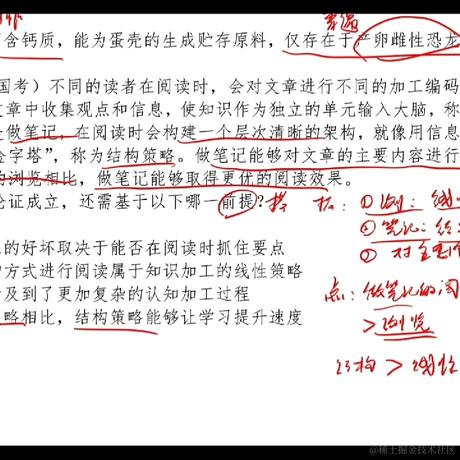 普遍
含钙质，能为蛋壳的生成贮存原料，仅存在于产卵雌性恐龙
国考）不同的读者在阅读时，会对文章进行不同的加工编码
文章中收集观点和信息，使知识作为独立的单元输入大脑，称
做笔记，在阅读时会构建一个层次清晰的架构，就像用信息
金字塔”，称为结构策略。做笔记能够对文章的主要内容进行
的浏览相比，做笔记能够取得更优的阅读效果。
论证成立，还需基于以下哪一前提？搭 桥：①浏：线
②笔记：结
的好坏取决于能否在阅读时抓住要点 ③对主要
方式进行阅读属于知识加工的线性策略
及到了更加复杂的认知加工过程 点：做笔记的阅
略相比，结构策略能够让学习提升速度 >浏览
结构 > 线性
@稀土掘金技术社区